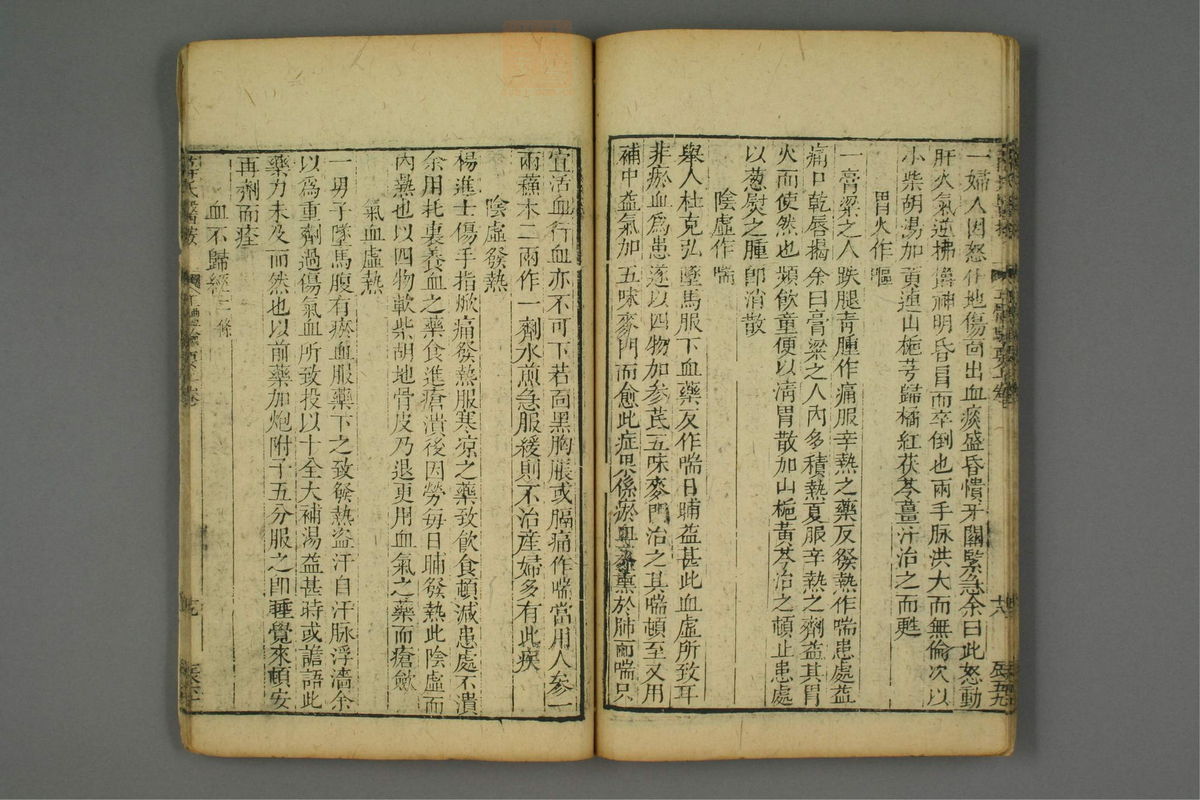 一婦人因怒仆地傷面出血痰盛昏憒牙關緊急余曰此怒動
肝火氣逆拂鬱神明昏冒而卒倒也兩手脉洪大而無倫次以
小柴胡湯加黃連山梔芎歸橘紅茯苓薑汁治之而甦
胃火作嘔
一膏粱之人跌腿青腫作痛服辛熱之藥反發熱作喘患處益
痛口乾唇揭余曰膏粱之人內多積熱夏服辛熱之劑益其胃
火而使然也頻飲童便以清胃散加山梔黃芩治之頓止患處
以葱熨之腫即消散
陰虛作喘
舉人杜克弘墜馬服下血藥反作喘日晡益甚此血虛所致耳
非瘀血為患遂以四物加參芪五味麥門治之其喘頓至又用
補中益氣加五味麥門而愈此症果係瘀血來熏於肺而喘只
宜活血行血亦不可下若面黑胸脹或膈痛作喘當用人參一
兩蘇木二兩作一劑水煎急服緩則不治產婦多有此疾
陰虛發熱
楊進士傷手指焮痛發熱服寒凉之藥致飲食頓減患處不潰
余用托裏養血之藥食進瘡潰後因勞每日晡發熱此陰虛而
內熱也以四物軟柴胡地骨皮乃退更用血氣之藥而瘡斂
氣血虛熱
一男子墜馬腹有瘀血服藥下之致發熱盜汗自汗脉浮濇余
以為重劑過傷氣血所致投以十全大補湯益甚時或譫語此
藥力未及而然也以前藥加炮附子五分服之即睡覺來頓安
再劑而痊
血不歸經二條